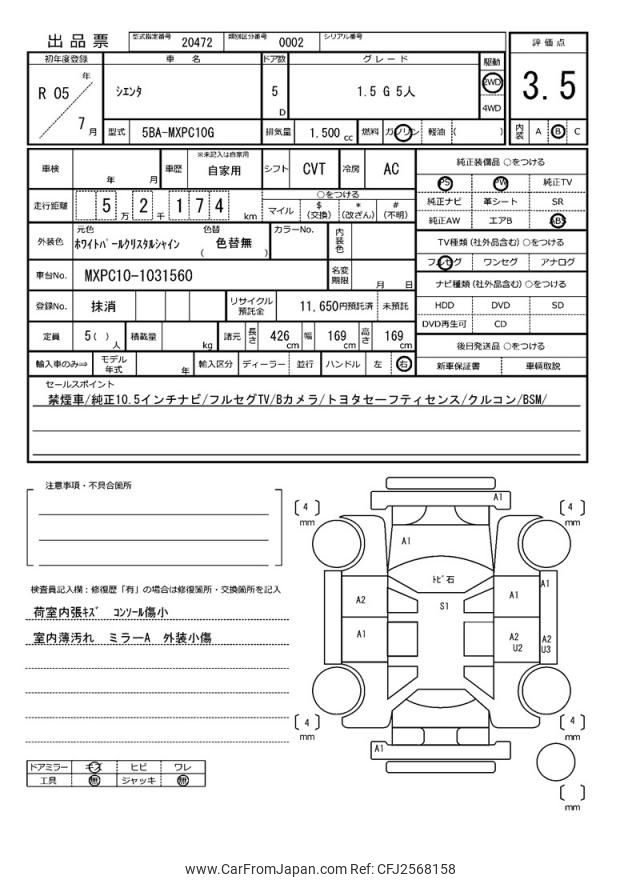 出品票 型式指定番号 20472 類別区分番号 0002 シリアル番号
評価点
3.5
内装 A B C
初年度登録 車名 ドア数 グレード 駆動
R 05 年 7 月 シエンタ 5 D 1.5 G 5人 2WD 4WD
型式 5BA-MXPC10G 排気量 1.500 cc 燃料 ガソリン 軽油 ( )
車検 年 月 車歴 ※未記入は自家用 自家用 シフト CVT 冷房 AC
走行距離 5 万 2 千 1 7 4 km
○をつける
マイル $(交換) *(改ざん) #(不明)
外装色 元色 ホワイトパールクリスタルシャイン 色替 ( 色替無 ) カラーNo. 内装色
車台No. MXPC10-1031560 名変期限 月 日
登録No. 抹消 リサイクル預託金 11,650円預託済 未預託
定員 5( ) 人 積載量 kg 諸元 長さ 426 cm 幅 169 cm 高さ 169 cm
輸入車のみ⇒ モデル年式 年 輸入区分 ディーラー 並行 ハンドル 左 右
純正装備品 ○をつける
PS PW 純正TV
純正ナビ 革シート SR
純正AW エアB ABS
TV種類(社外品含む)○をつける
フルセグ ワンセグ アナログ
ナビ種類(社外品含む)○をつける
HDD DVD SD
DVD再生可 CD
後日発送品 ○をつける
新車保証書 車輌取説
セールスポイント
禁煙車/純正10.5インチナビ/フルセグTV/Bカメラ/トヨタセーフティセンス/クルコン/BSM/
注意事項・不具合箇所
検査員記入欄:修復歴「有」の場合は修復箇所・交換箇所を記入
荷室内張キズ コンソール傷小
室内薄汚れ ミラーA 外装小傷
ドアミラー キズ ヒビ ワレ
工具 無 ジャッキ 無
A1
[4] mm
[4] mm
A1
トビ石
S1
A2
A1
A1
A1
A2
U2
A2
U3
[4] mm
[4] mm
A1
[ ] mm
www.CarFromJapan.com Ref: CFJ2568158